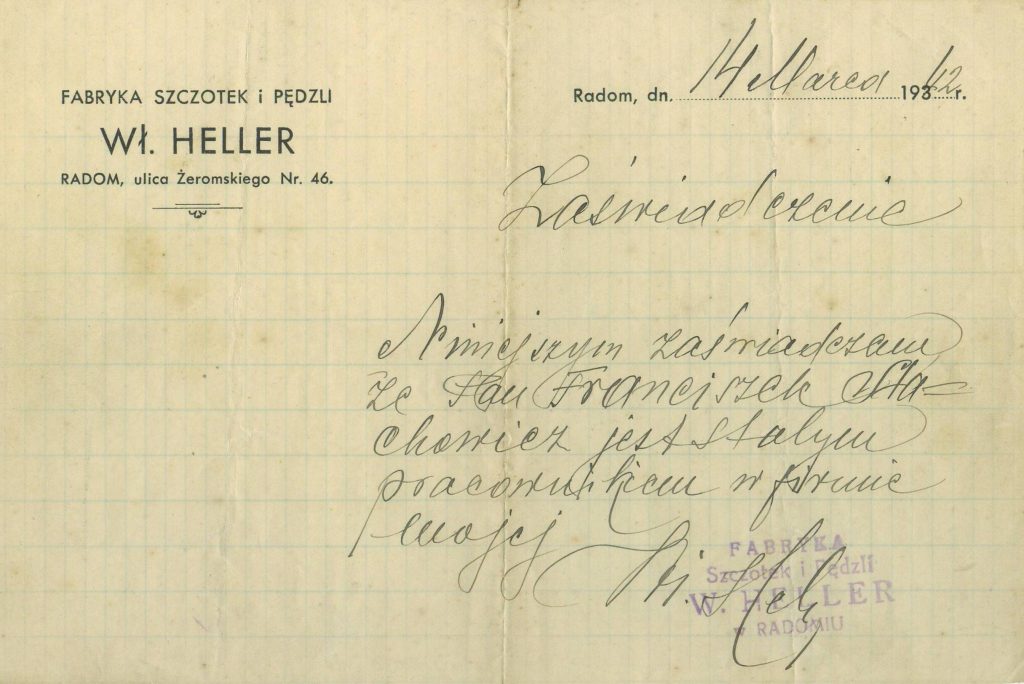 FABRYKA SZCZOTEK i PĘDZLI
Wł. HELLER
RADOM, ulica Żeromskiego Nr. 46.
Radom, dn. 14 Marca 1942 r.
Zaświadczenie
Niniejszym zaświadczam
że Pan Franciszek Sta=
chowicz jest stałym
pracownikiem w firmie
mojej
FABRYKA
Szczotek i Pędzli
W. HELLER
w RADOMIU